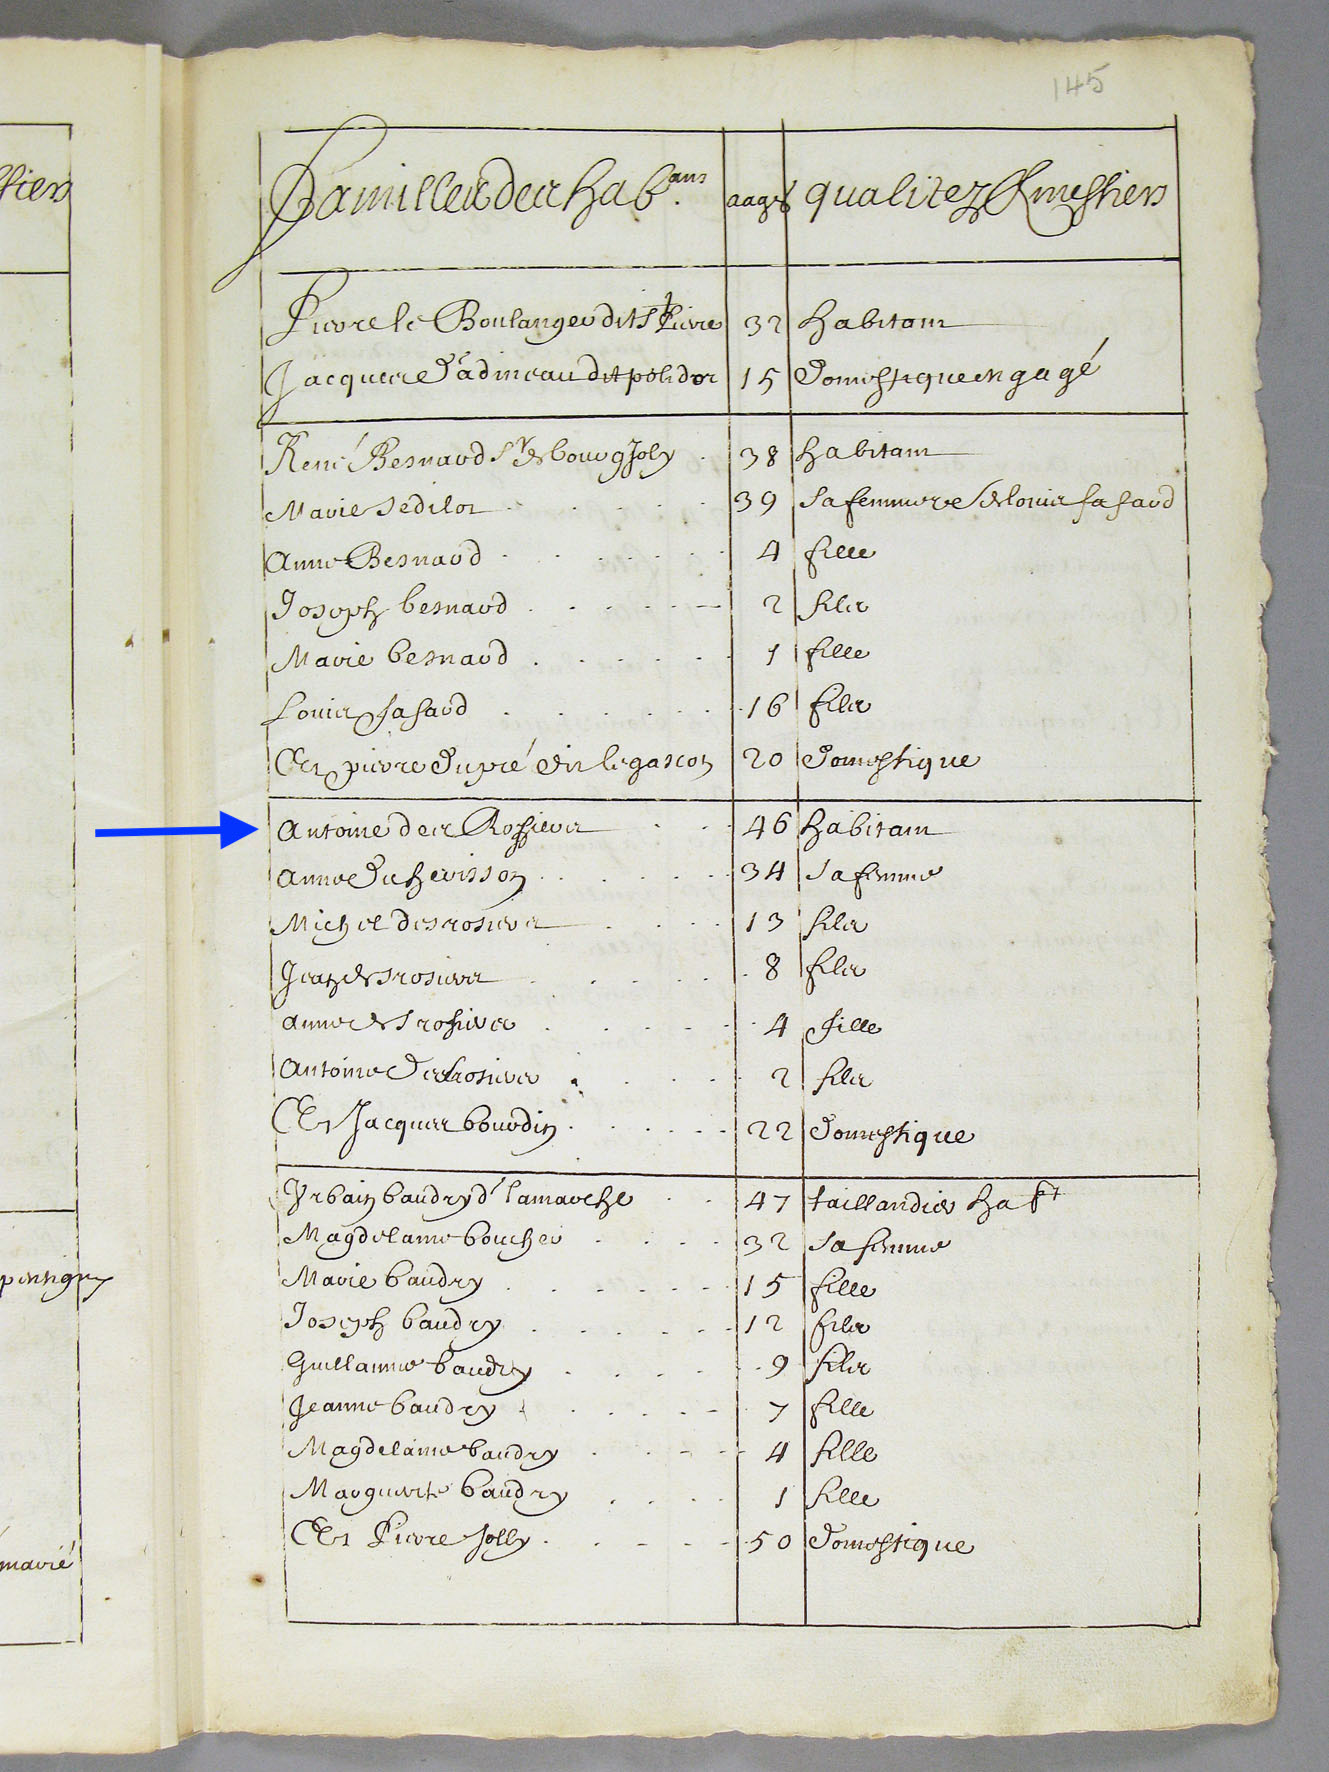 145
Familles des habans aages qualitez & mestiers
Pierre le Boulanger dit St Pierre 32 habitant
Jacques Radineau dit polidor 15 Domestique engagé
René Besnard Sr de bourgJoly 38 habitant
Marie Sedilot 39 sa femme ve de louis fafard
Anne Besnard 4 fille
Joseph besnard 2 fils
Marie besnard 1 fille
Louis fafard 16 fils
Et pierre Dupré dit le gascon 20 Domestique
Antoine des Rossiers 46 habitant
Anne Du herisson 34 sa femme
Michel desrosiers 13 fils
Jean desrosiers 8 fils
anne desrosiers 4 fille
Antoine Desrosiers 2 fils
Et Jacques bourdin 22 Domestique
Vrbain baudry dt lamarche 47 taillandier habt
Magdelaine boucher 32 sa femme
Marie baudry 15 fille
Joseph baudry 12 fils
Guillaume baudry 9 fils
Jeanne baudry 7 fille
Magdelaine baudry 4 fille
Marguerite baudry 1 fille
Et Pierre Jolly 50 Domestique
marié